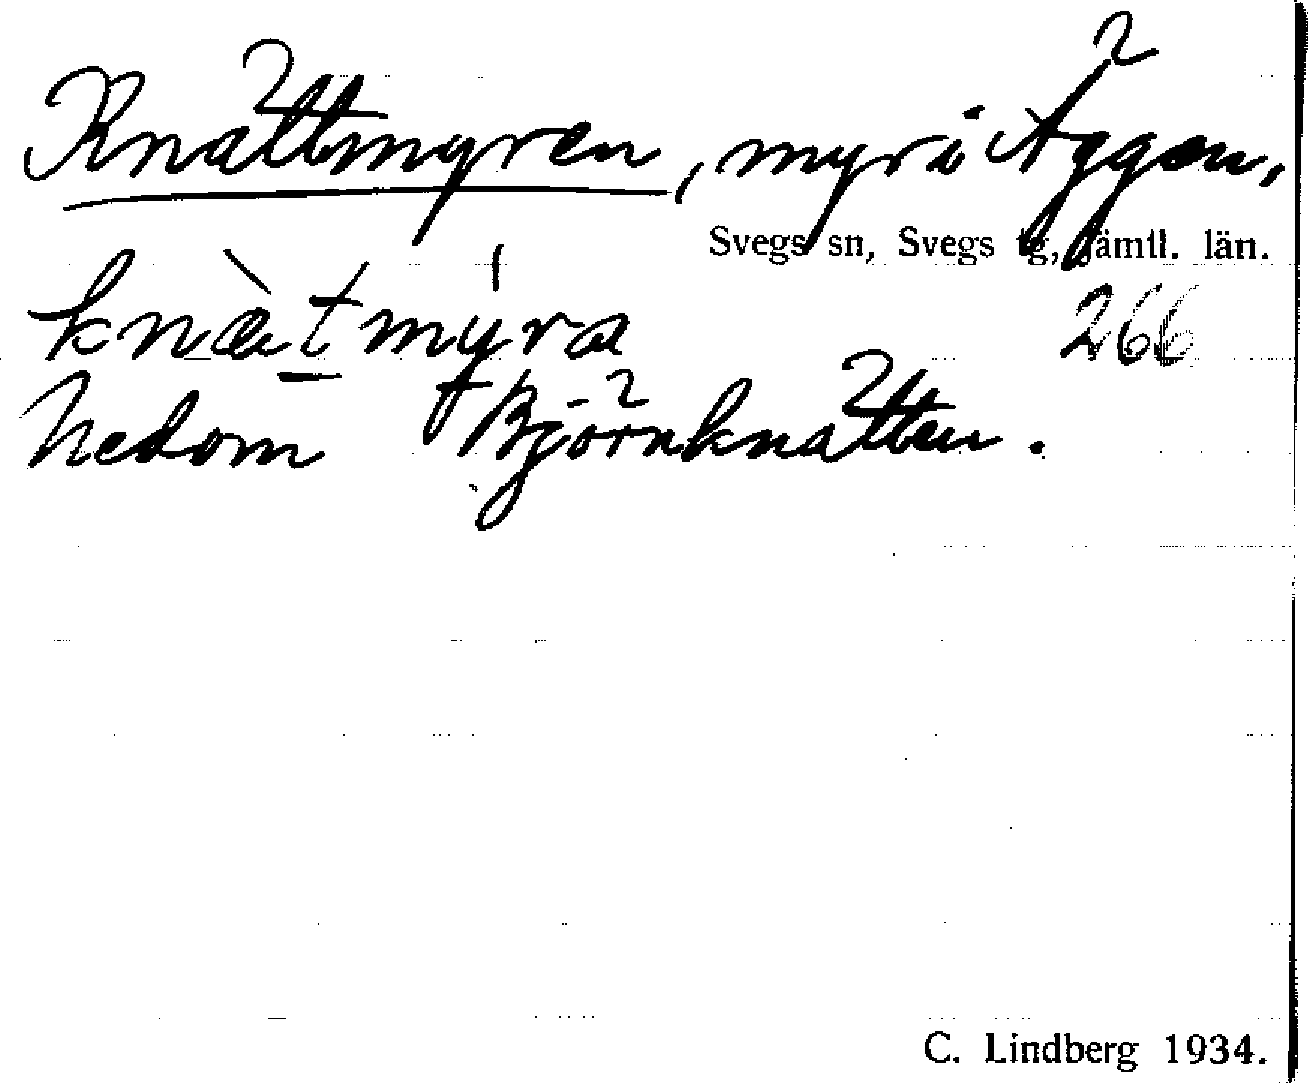 Knättmyren, myr i Äggen,
Svegs sn, Svegs tg, Jämtl. län.
knæ̀tmýra 266
nedom †Björnknätten.
C. Lindberg 1934.